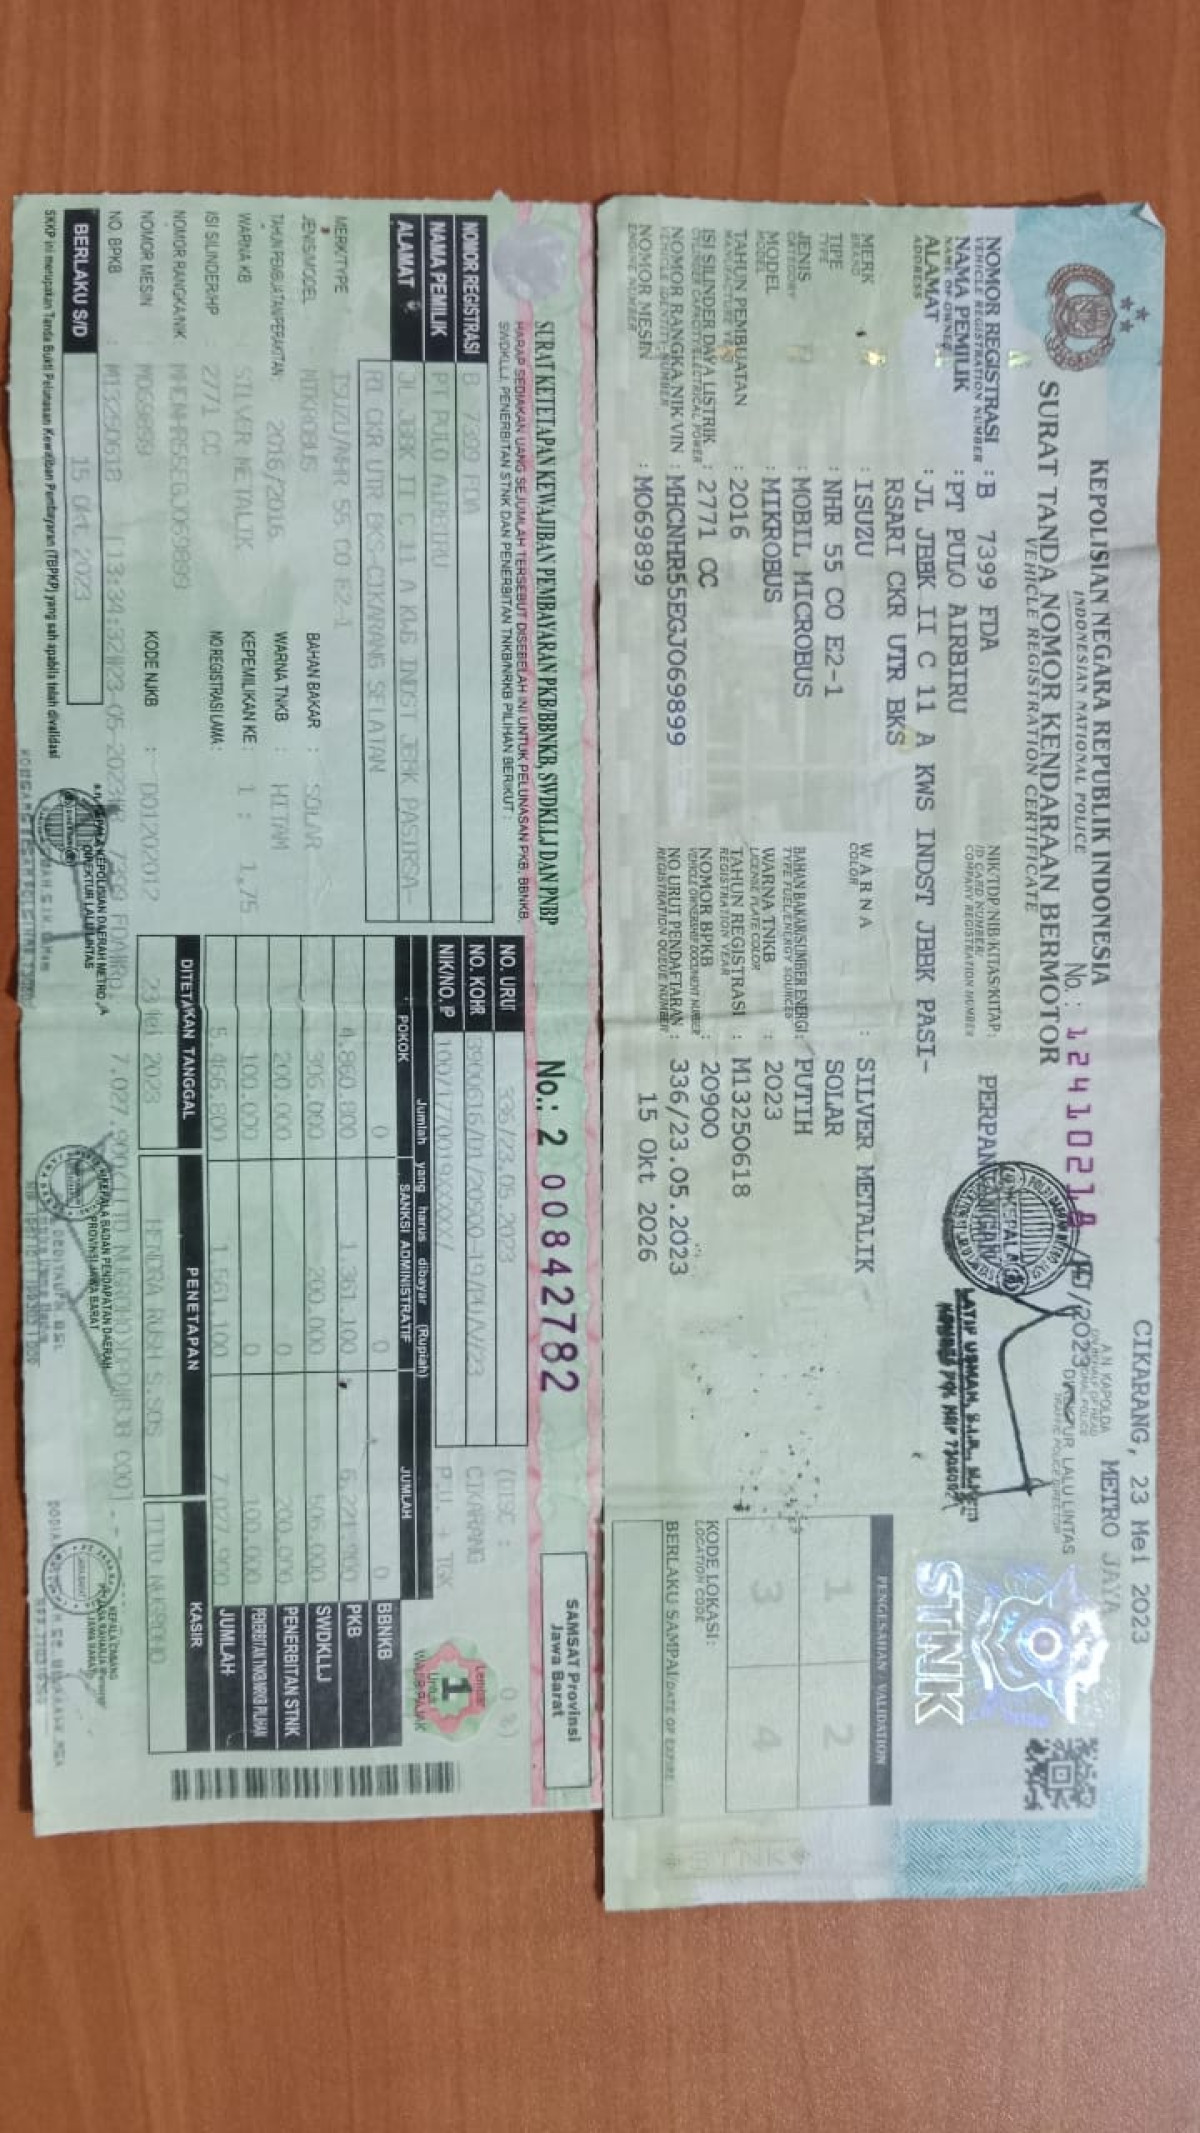 KEPOLISIAN NEGARA REPUBLIK INDONESIA
INDONESIAN NATIONAL POLICE
SURAT TANDA NOMOR KENDARAAN BERMOTOR
VEHICLE REGISTRATION CERTIFICATE
CIKARANG, 23 Mei 2023
A.N. KAPOLDA METRO JAYA
LALU LINTAS
TRAFFIC POLICE DIRECTOR
NOMOR REGISTRASI : B 7399 FDA
VEHICLE REGISTRATION NUMBER
NIK/TDP/NIB/KITAS/KITAP:
ID CARD NUMBER/
COMPANY REGISTRATION NUMBER
NAMA PEMILIK : PT PULO AIRBIRU
NAME OF OWNER
ALAMAT : JL JBBK II C 11 A KWS INDST JBBK PASI-
ADDRESS
RSARI CKR UTR BKS
MERK : ISUZU
BRAND
TIPE : NHR 55 CO E2-1
TYPE
JENIS : MOBIL MICROBUS
CATEGORY
MODEL : MIKROBUS
MODEL
TAHUN PEMBUATAN : 2016
MANUFACTURE YEAR
ISI SILINDER/DAYA LISTRIK : 2771 CC
NOMOR RANGKA/NIK/VIN : MHCNHR55EGJ069899
VEHICLE IDENTITY NUMBER
NOMOR MESIN : M069899
ENGINE NUMBER
WARNA : SILVER METALIK
COLOR
BAHAN BAKAR/SUMBER ENERGI : SOLAR
TYPE FUEL/ENERGY SOURCES
WARNA TNKB : PUTIH
LICENSE PLATE COLOR
TAHUN REGISTRASI : 2023
REGISTRATION YEAR
NOMOR BPKB : M13250618
VEHICLE OWNERSHIP DOCUMENT NUMBER
20900
NO URUT PENDAFTARAN : 336/23.05.2023
REGISTRATION QUEUE NUMBER
15 Okt 2026
STNK
PENGESAHAN VALIDATION
1 2
3 4
KODE LOKASI :
LOCATION CODE
BERLAKU SAMPAI/DATE OF EXPIRE
SURAT KETETAPAN KEWAJIBAN PEMBAYARAN PKB/BBNKB, SWDKLLJ DAN PNBP
HARAP SEDIAKAN UANG SEJUMLAH TERSEBUT DISEBELAH INI UNTUK PELUNASAN PKB, BBNKB,
SWDKLLJ, PENERBITAN STNK DAN PENERBITAN TNKB/NRKB PILIHAN BERIKUT :
No.: 2 00842782
SAMSAT Provinsi
Jawa Barat
NOMOR REGISTRASI B 7399 FDA
NAMA PEMILIK PT PULO AIRBIRU
ALAMAT JL JBBK II C 11 A KWS INDST JBBK PASIRSA-
RI CKR UTR BKS-CIKARANG SELATAN
MERK/TYPE : ISUZU/NHR 55 CO E2-1
JENIS/MODEL : MIKROBUS
TAHUN PEMBUATAN/PERAKITAN: 2016/2016
WARNA KB : SILVER METALIK
ISI SILINDER/HP : 2771 CC
NOMOR RANGKA/NIK : MHCNHR55EGJ069899
NOMOR MESIN : M069899
NO. BPKB : M13250618
BAHAN BAKAR : SOLAR
WARNA TNKB : HITAM
KEPEMILIKAN KE : 1 : 1,75
NO REGISTRASI LAMA :
KODE NJKB :
BERLAKU S/D 15 Okt 2023
SKKP ini merupakan Tanda Bukti Pelunasan Kewajiban Pembayaran (TBPKP) yang sah apabila telah divalidasi
NO. URUT 336/23.05.2023
NO. KOHIR
CIKARANG
Jumlah yang harus dibayar (Rupiah)
POKOK SANKSI ADMINISTRATIF JUMLAH
0 0 0 BBNKB
4.860.800 1.361.100 6.221.900 PKB
306.000 200.000 506.000 SWDKLLJ
200.000 0 200.000 PENERBITAN STNK
100.000 0 100.000 PENERBITAN TNKB/NRKB PILIHAN
5.466.800 1.561.100 7.027.900 JUMLAH
Lembar
1
Untuk
WAJIB PAJAK
DITETAPKAN TANGGAL PENETAPAN KASIR
23 Mei 2023 HENDRA RUSH S.SOS TITO NUGROHO
KEPALA BADAN PENDAPATAN DAERAH
PROVINSI JAWA BARAT